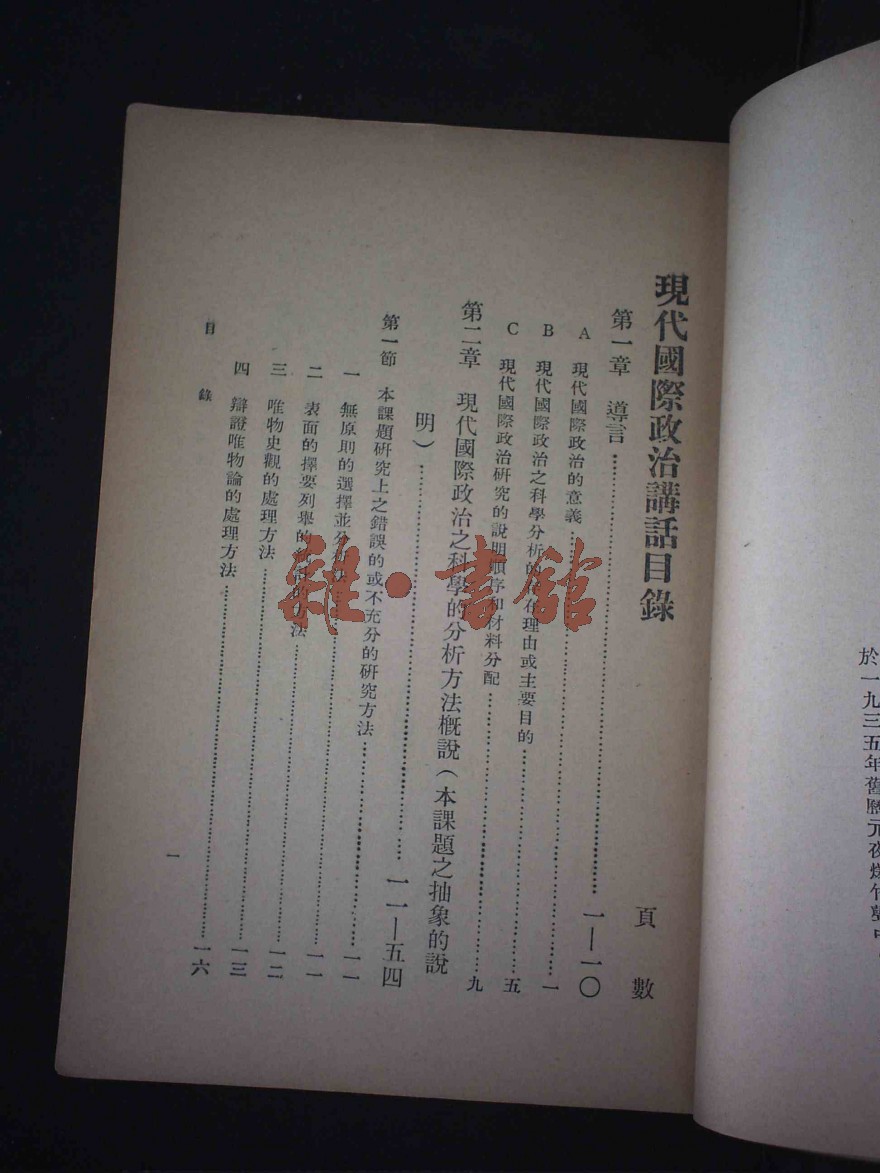 於一九三五年舊曆元夜爆竹聲中
現代國際政治講話目錄
頁數
第一章 導言……一—一〇
A 現代國際政治的意義……一
B 現代國際政治之科學分析的存在理由或主要目的……五
C 現代國際政治研究的說明順序和材料分配……九
第二章 現代國際政治之科學的分析方法概說(本課題之抽象的說
明)……一一—五四
第一節 本課題研究上之錯誤的或不充分的研究方法……一一
一 無原則的選擇並分析法……一一
二 表面的擇要列舉的方法……一二
三 唯物史觀的處理方法……一三
四 辯證唯物論的處理方法……一六
目錄
一
雜·書館